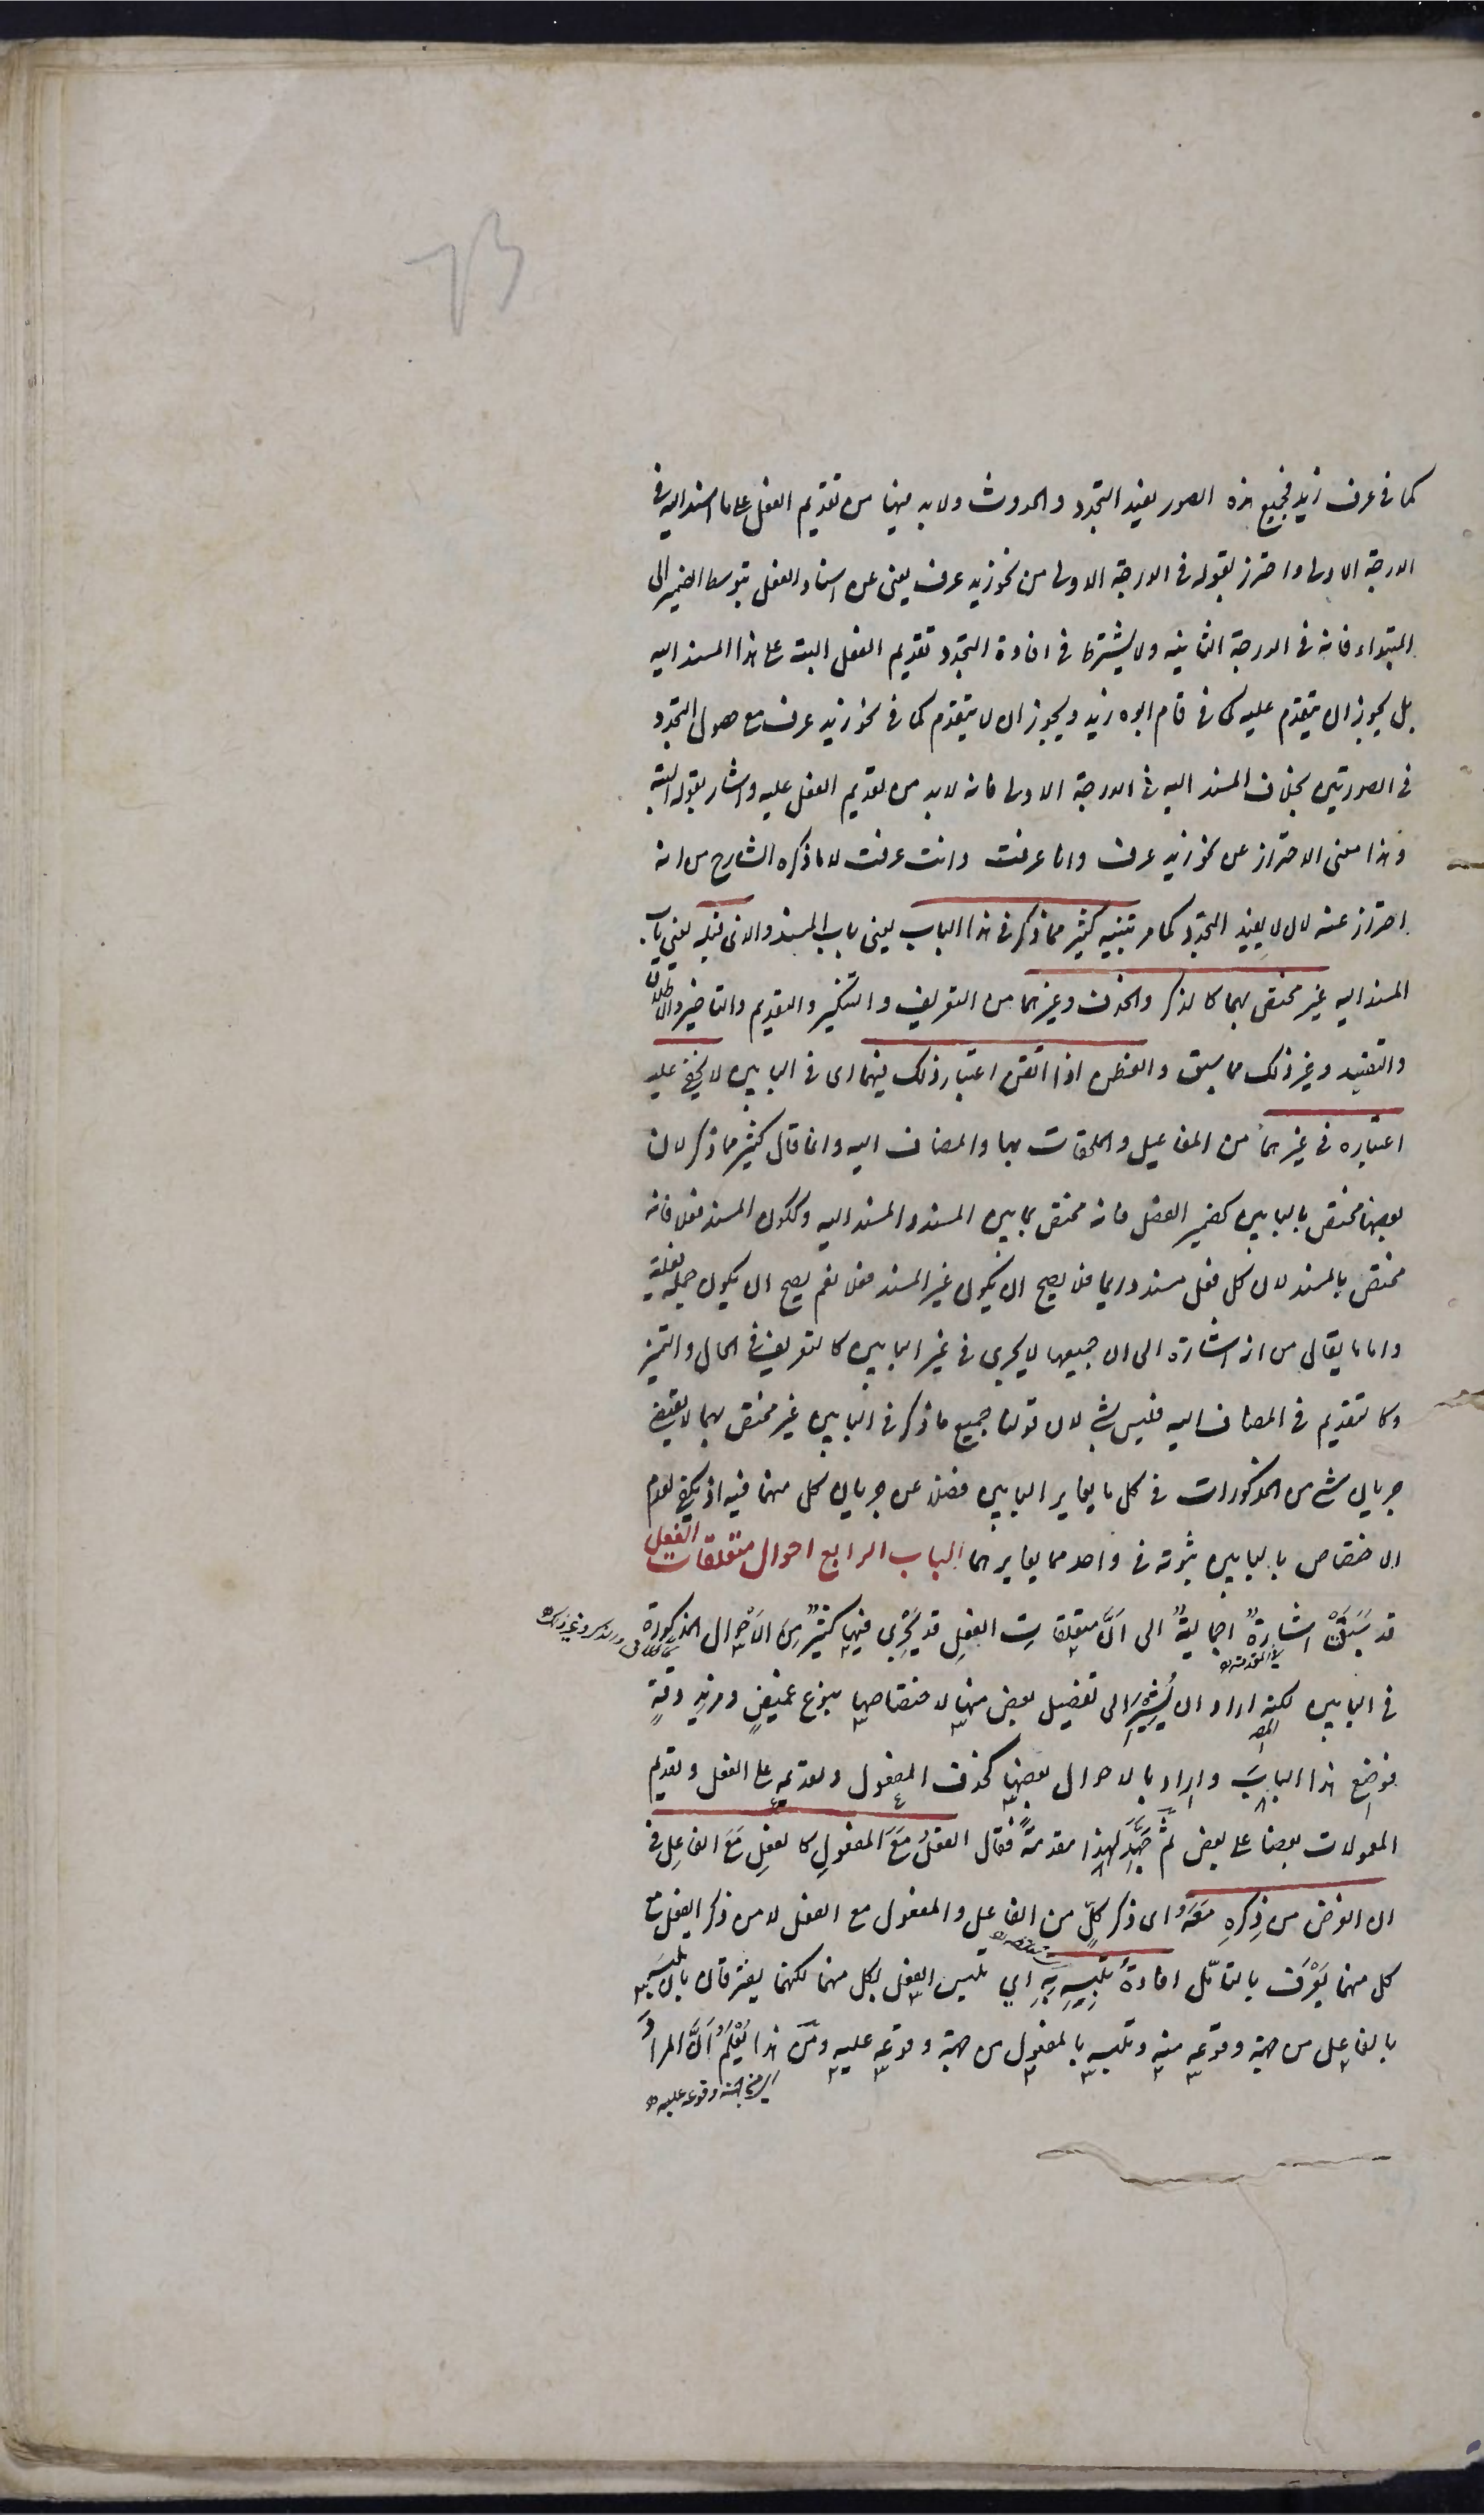 كما فى عرف زيد فجميع هذه الصور يفيد التجدد والحدوث ولا بد فيها من تقديم الفعل على ما اسند اليه فى
الدرجة الاولى واحترز بقوله فى الدرجة الاولى من نحو زيد عرف يعنى عن اسناد الفعل بتوسط الضمير الى
المبتداء فانه فى الدرجة الثانيه ولا يشترط فى افادة التجدد تقديم الفعل البتة على هذا المسند اليه
بل يجوز ان يتقدم عليه كما فى قام ابوه زيد ويجوز ان لا يتقدم كما فى نحو زيد عرف مع حصول التجدد
فى الصورتين بخلاف المسند اليه فى الدرجة الاولى فانه لا بد من تقديم الفعل عليه واشار بقوله البتة
وهذا معنى الاحتراز عن نحو زيد عرف وانا عرفت وانت عرفت لا ما ذكره الشارح من انه
احترز عنه لانه لا يفيد التجدد كما مر تنبيه كثير مما ذكر فى هذا الباب يعنى باب المسند والذى قبله يعنى باب
المسند اليه غير مختص بهما كالذكر والحذف وغيرهما من التعريف والتنكير والتقديم والتاخير والاطلاق
والتقييد وغير ذلك مما سبق والفطن اذا اتقن اعتبار ذلك فيهما اى فى البابين لا يخفى عليه
اعتباره فى غيرهما من المفاعيل والملحقات بها والمضاف اليه وانما قال كثير مما ذكر لان
بعضها مختص بالبابين كضمير الفصل فانه مختص بما بين المسند والمسند اليه وككون المسند فعلا فانه
مختص بالمسند لان كل فعل مسند دايما فلا يصح ان يكون غير المسند فعلا نعم يصح ان يكون جملة فعلية
واما ما يقال من انه اشارة الى ان جميعها لا يجرى فى غير البابين كالتعريف فى الحال والتميز
وكالتقديم فى المضاف اليه فليس بشى لان قولنا جميع ما ذكر فى البابين غير مختص بهما لا يقتضى
جريان شى من المذكورات فى كل ما يغاير البابين فضلا عن جريان كل منهما فيه اذ يكفى لعدم
الاختصاص بالبابين ثبوته فى واحد مما يغايرهما الباب الرابع احوال متعلقات الفعل
قد سَبَقَتْ اشارةٌ اجماليةٌ الى اَنَّ متعلقاتِ الفعلِ قد يَجْرِى فيها كثيرٌ مِنَ الاَحْوال المذكورة
فى البابين لكنه اراد ان يُشِيْرَ الى تفصيل بعض منها لاختصاصها بنوع غميضٍ ومزيدِ دقّةٍ
فوضع هذا البابَ واراد بالاحوال بعضها كحذف المفعول وتقديمه على الفعل وتقديم
المعمولات بعضا على بعض ثُمَّ مَهَّدَ لهذا مقدمةً فقال الفعلُ مَعَ المفعولِ كالفعلِ مَعَ الفاعِلِ فى
ان الغرض من ذِكرِهِ مَعَهُ اى ذكر كلٍّ من الفاعل والمفعول مع الفعل لا من ذكر الفعل مع
كل منهما يُعْرَف بالتاَمّل افادةُ تلبّسِهِ بِهِ اي تلبس الفعل بكل منهما لكنهما يفترقان بانّ تلبسَه
بالفاعل من جهة وقوعه منه وتلبسه بالمفعول من جهة وقوعه عليه ومن هذا يُعْلَمُ اَنَّ المرادَ